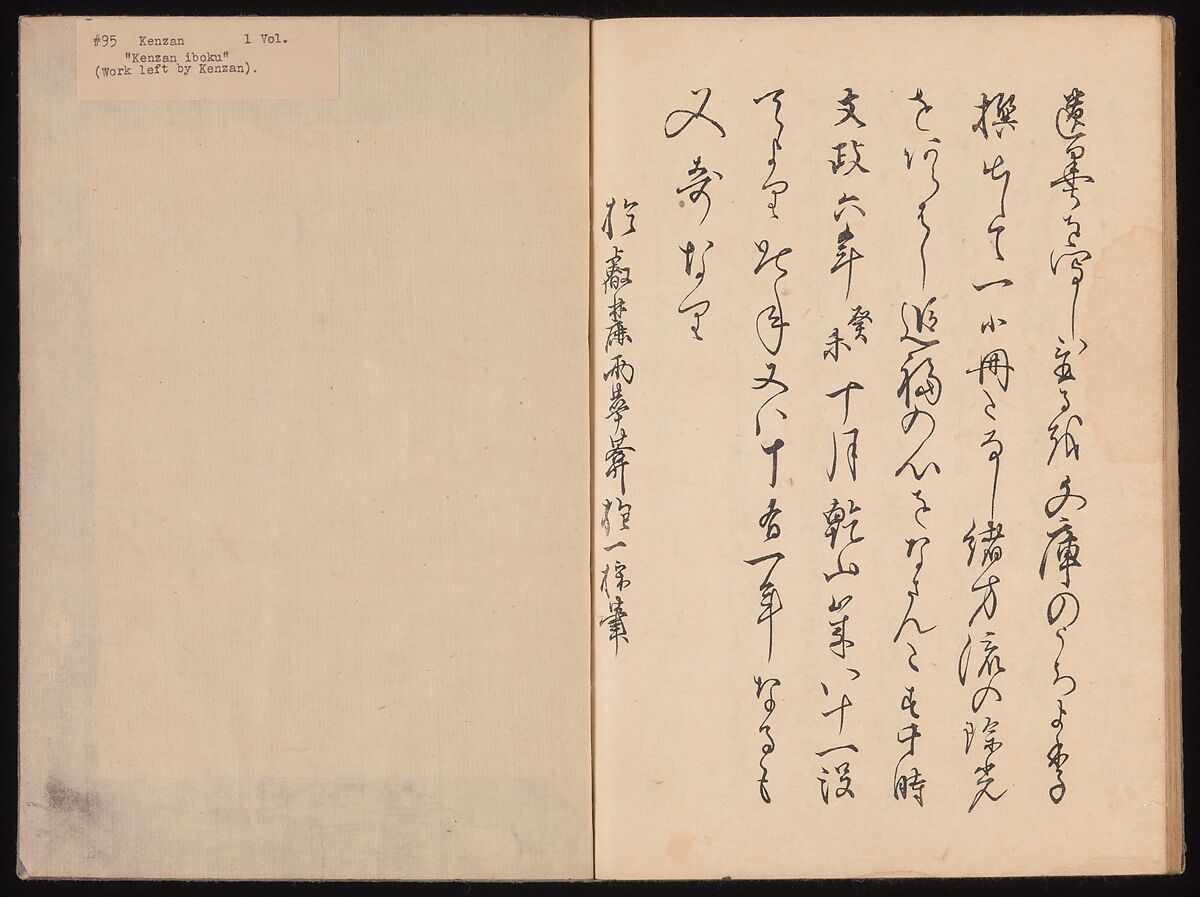 #95 Kenzan 1 Vol.
"Kenzan iboku"
(Work left by Kenzan).
遺墨を写し置る我文庫のうちより
撰出して一小冊となし緒方流の餘光
をあらはし追福の心をなさんとす干時
文政六年癸未十月乾山歳八十一没
てより此年又八十有一年なるも
又奇なり
於叡麓雨華葊抱一採筆